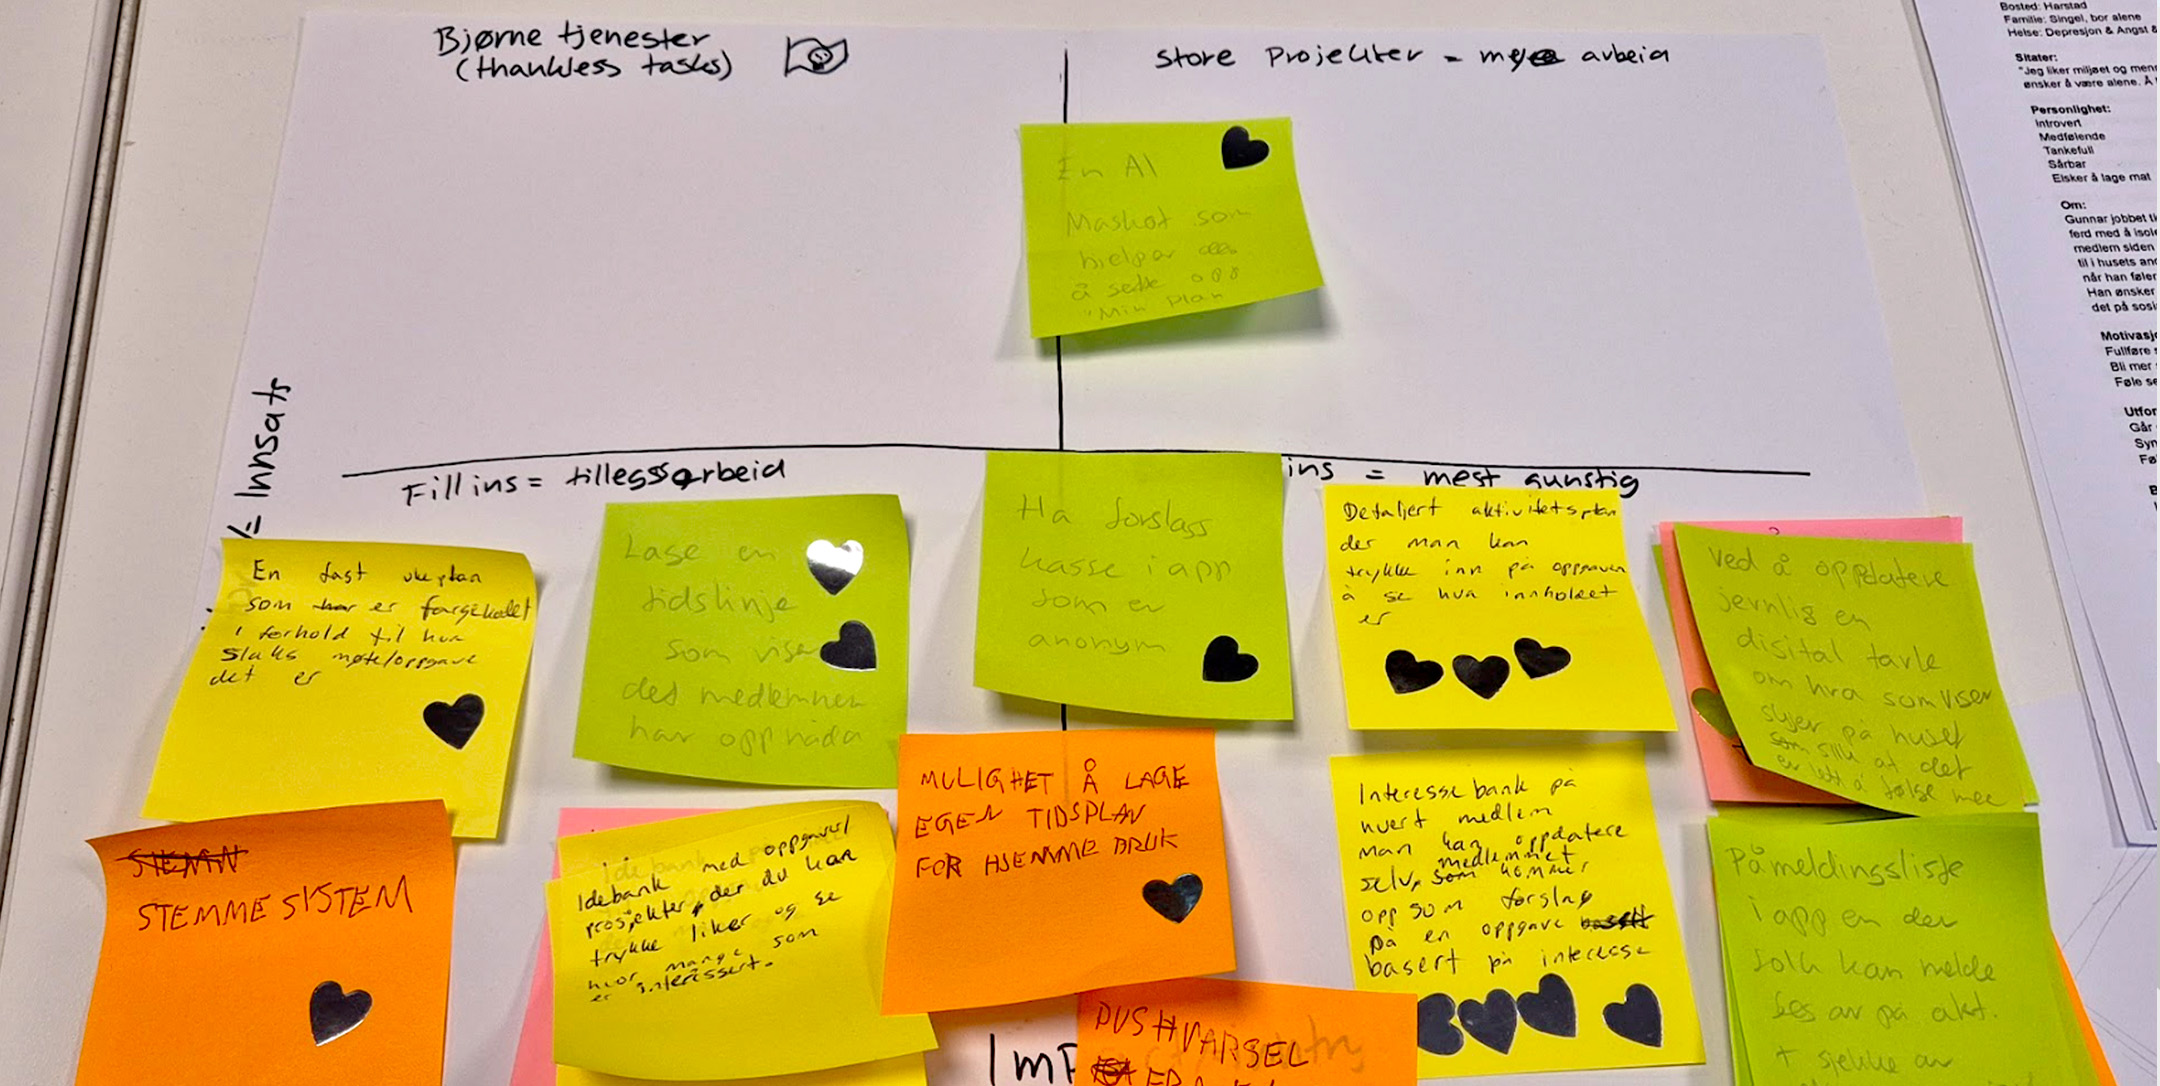 Bjørne tjenester
(thankless tasks)
store Projekter = mye arbeid
En AI
Maskot som
hjelper
å sette opp
"Min Plan
Innsats
Fill ins = tillegssarbeid
ins = mest gunstig
En fast ukeplan
som er fargekodet
i forhold til hva
slaks møte/oppgave
det er
Lage en
tidslinje
som viser
det medlemmen
har oppnåda
Ha forslags
kasse i app
som er
anonym
Detaljert aktivitetsplan
der man kan
trykke inn på oppgaven
å se hva innholdet
er
Ved å oppdatere
jevnlig en
digital tavle
om hva som viser
skjer på huset
slik at det
er lett å følge med
STEMME SYSTEM
Idebank med oppgaver/
prosjekter, der du kan
trykke liker og se
hvor mange som
er interessert.
MULIGHET Å LAGE
EGEN TIDSPLAN
FOR HJEMME BRUK
Interesse bank på
hvert medlem
man kan oppdatere
selv, medlemmet
som kommer
opp som forslag
på en oppgave
basert på interesse
Påmeldingsliste
i app en der
folk kan melde
seg av på akt.
+ sjekke av
PUSHVARSEL
FRA
Imp
Bosted: Harstad
Familie: Singel, bor alene
Helse: Depresjon & Angst &
Sitater:
"Jeg liker miljøet og menn
ønsker å være alene. Å
Personlighet:
Introvert
Medfølende
Tankefull
Sårbar
Elsker å lage mat
Om:
Gunnar jobbet ti
ferd med å isole
medlem siden
til i husets an
når han føler
Han ønsker
det på sosi
Motivasj
Fullføre
Bli mer
Føle se
Utfor
Går
Syn
Fø